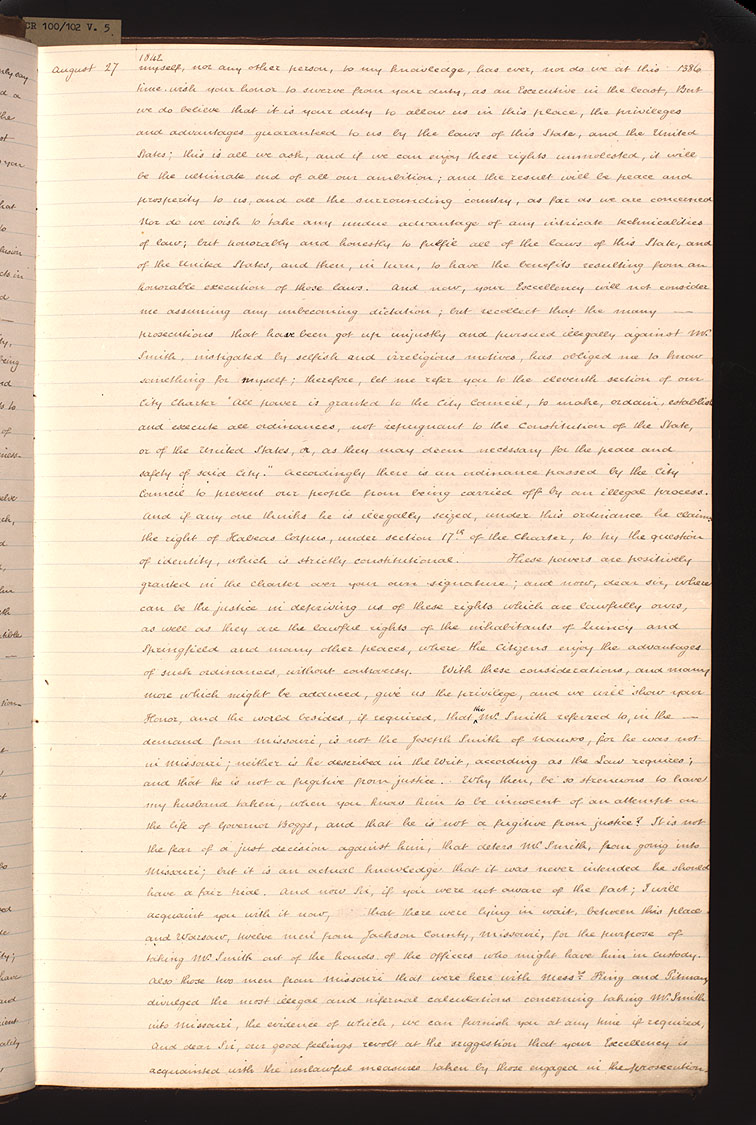 CR 100/102 V. 5
1842
August 27 myself, nor any other person, to my knowledge, has ever, nor do we at this 1386
time wish your honor to swerve from your duty, as an Executive in the least, But
we do believe that it is your duty to allow us in this place, the privileges
and advantages guaranteed to us by the laws of this State, and the United
States; this is all we ask, and if we can enjoy these rights unmolested, it will
be the ultimate end of all our ambition; and the result will be peace and
prosperity to us, and all the surrounding country, as far as we are concerned
Nor do we wish to take any undue advantage of any intricate technicalities
of law; but honorably and honestly to fulfil all of the laws of this State, and
of the United States, and then, in turn, to have the benefits resulting from an
honorable execution of those laws. And now, your Excellency will not consider
me assuming any unbecoming dictation; but recollect that the many —
prosecutions that have been got up unjustly and pursued illegally against Mr.
Smith, instigated by selfish and irreligious motives, has obliged me to know
something for myself; therefore, let me refer you to the eleventh section of our
City Charter "All power is granted to the City Council, to make, ordain, establish
and execute all ordinances, not repugnant to the Constitution of the State,
or of the United States, or, as they may deem necessary for the peace and
safety of said City." Accordingly there is an ordinance passed by the City
Council to prevent our people from being carried off by an illegal process.
And if any one thinks he is illegally seized, under this ordinance he claims
the right of Habeas Corpus, under section 17th of the Charter, to try the question
of identity, which is strictly constitutional. These powers are positively
granted in the charter over your own signature; and now, dear sir, where
can be the justice in depriving us of these rights which are lawfully ours,
as well as they are the lawful rights of the inhabitants of Quincy and
Springfield and many other places, where the Citizens enjoy the advantages
of such ordinances, without controversy. With these considerations, and many
more which might be adduced, give us the privilege, and we will show your
Honor, and the world besides, if required, that the Mr. Smith referred to, in the —
demand from Missouri, is not the Joseph Smith of Nauvoo, for he was not
in Missouri; neither is he described in the Writ, according as the Law requires;
and that he is not a fugitive from justice. Why then, be so strenuous to have
my husband taken, when you know him to be innocent of an attempt on
the life of Governor Boggs, and that he is not a fugitive from justice? It is not
the fear of a just decision against him, that deters Mr. Smith, from going into
Missouri; but it is an actual knowledge that it was never intended he should
have a fair trial. And now Sir, if you were not aware of the fact; I will
acquaint you with it now, that there were lying in wait, between this place
and Warsaw, twelve men from Jackson County, Missouri, for the purpose of
taking Mr. Smith out of the hands of the officers who might have him in custody.
Also those two men from Missouri that were here with Messrs. King and Pitman,
divulged the most illegal and infernal calculations concerning taking Mr. Smith
into Missouri, the evidence of which, we can furnish you at any time if required,
And dear Sir, our good feelings revolt at the suggestion that your Excellency is
acquainted with the unlawful measures taken by those engaged in the prosecution